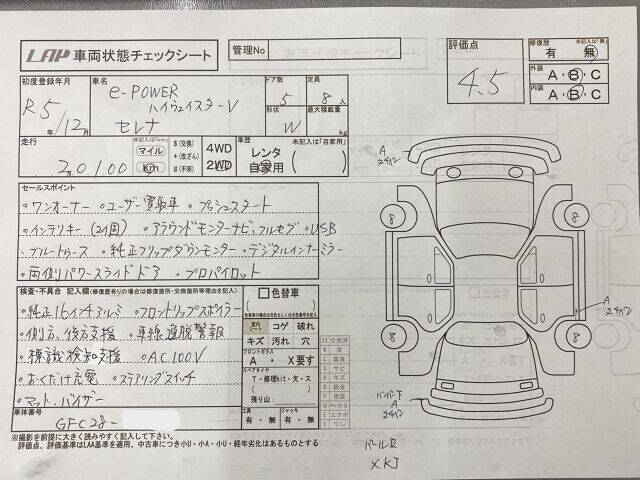 LAP 車両状態チェックシート
管理No
評価点
4.5
修復歴 未記入は「無」
有 無
外装 A・B・C
内装 A・B・C
初度登録年月
R5年/12月
車名
e-POWER
ハイウェイスターV
セレナ
ドア数
5
定員
8人
形状
W
最大積載量
kg
走行 未記入は「km」
20100
マイル
km
$(交換)
*(改ざん)
#(不明)
4WD
2WD
車歴 未記入は「自家用」
レンタ
自家用( )
セールスポイント
・ワンオーナー ・ユーザー買取車 ・プッシュスタート
・インテリキー(2個) ・アラウンドモンターナビ,フルセグ ・USB
・ブルートゥース ・純正フリップダウンモンター ・デジタルインナーミラー
・両側パワースライドドア ・プロパイロット
検査・不具合 記入欄(修復歴有りの場合は修復箇所・交換箇所等理由を記入)
・純正16インチアルミ ・フロントリップスポイラー
・側方、後方支援 ・車線逸脱警報
・標識検知支援 ・AC100V
・おくだけ充電 ・ステアリングスイッチ
・マット、バイザー
色替車
( )
コゲ 破れ
キズ 汚れ 穴
フロントガラス
A ・ X要す
スペアタイヤ
T・修理kit・欠・ス
( )
残り山:
工具
有・無
ジャッキ
有・無
XX 交換済
W 波
C 腐食
S サビ
A キズ
B 鈑金
P 塗装
U ヘコミ
E エクボ
Y ワレ
車体番号
GFC28-
※撮影を前提に大きく読みやすく記入して下さい。
評価点、評価基準はLAA基準を適用、中古車につき小U・小A・小U・経年劣化はあるものとする
A
8
8
8
8
A
バンパー下
A
パールⅡ
XKJ